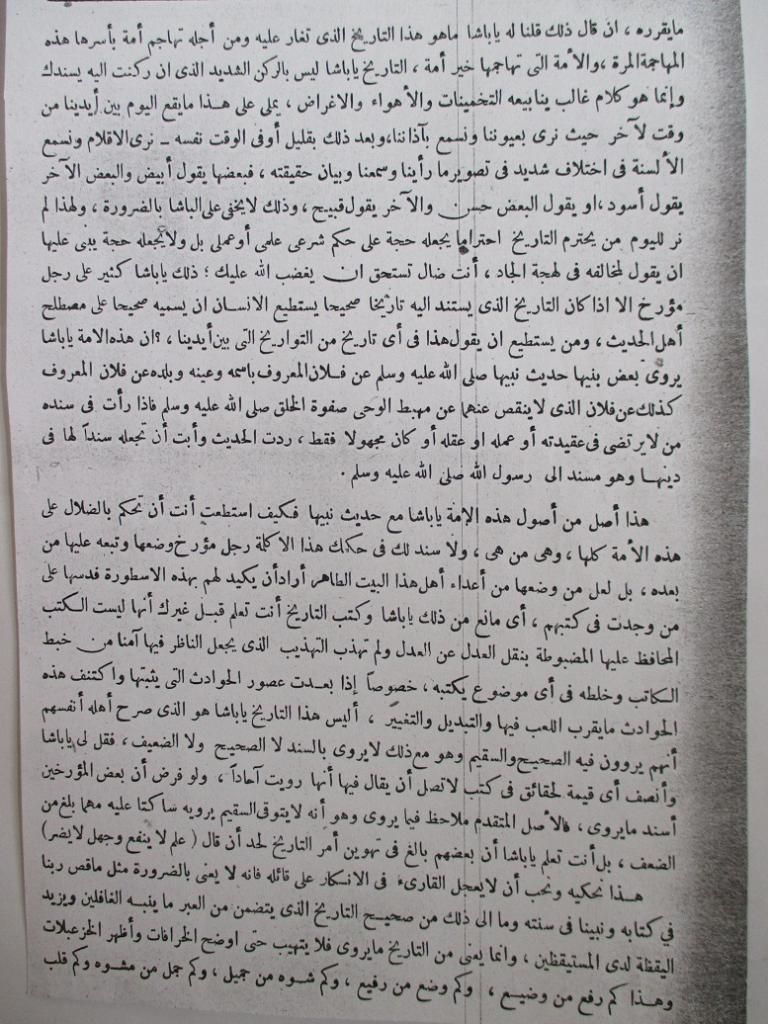 مايقرره ، ان قال ذلك قلنا له ياباشا ماهو هذا التاريخ الذى تغار عليه ومن أجله تهاجم أمة بأسرها هذه
المهاجمة المرة ، والأمة التى تهاجمها خير أمة ، التاريخ ياباشا ليس بالركن الشديد الذى ان ركنت اليه يسندك
وإنما هو كلام غالب ينابيعه التخمينات والأهواء والاغراض ، يملى على هـذا مايقع اليوم بين أيدينا من
وقت لآخر حيث نرى بعيوننا ونسمع بآذاننا، وبعد ذلك بقليل أو فى الوقت نفسه ـ نرى الاقلام ونسمع
الألسنة فى اختلاف شديد فى تصوير ما رأينا وسمعنا وبيان حقيقته ، فبعضها يقول أبيض والبعض الآخر
يقول أسود ، او يقول البعض حسن والآخر يقول قبيح ، وذلك لايخفى على الباشا بالضرورة ، ولهذا لم
نر لليوم من يحترم التاريخ احتراما يجعله حجة على حكم شرعى علمى أو عملى بل ولا يجعله حجة يبنى عليها
ان يقول لمخالفه فى لهجة الجاد ، أنت ضال تستحق ان يغضب الله عليك ؛ ذلك ياباشا كثير على رجل
مؤرخ الا اذا كان التاريخ الذى يستند اليه تاريخا صحيحا يستطيع الانسان ان يسميه صحيحا على مصطلح
أهل الحديث ، ومن يستطيع ان يقول هذا فى أى تاريخ من التواريخ التى بين أيدينا ، ؟ ان هذه الامة ياباشا
يروى بعض بنيها حديث نبيها صلى الله عليه وسلم عن فـلان المعروف باسمه وعينه وبلده عن فلان المعروف
كذلك عن فلان الذى لاينقص عنهما عن مهبط الوحى صفوة الخلق صلى الله عليه وسلم فاذا رأت فى سنده
من لايرتضى فى عقيدته أو عمله او عقله أو كان مجهولا فقط ، ردت الحديث وأبت أن تجعله سنداً لها فى
دينهـا وهو مسند الى رسول الله صلى الله عليه وسلم .
هذا أصل من أصول هذه الامة ياباشا مع حديث نبيها فكيف استطعت أنت أن تحكم بالضلال على
هذه الأمة كلها ، وهى من هى ، ولا سند لك فى حكمك هذا الا كلمة رجل مؤرخ وضعها وتبعه عليها من
بعده ، بل لعل من وضعها من أعداء أهل هذا البيت الطاهر أراد أن يكيد لهم بهذه الاسطورة فدسها على
من وجدت فى كتبهم ، أى مانع من ذلك ياباشا وكتب التاريخ أنت تعلم قبـل غيرك أنها ليست الكتب
المحافظ عليها المضبوطة بنقل العدل عن العدل ولم تهذب التهذيب الذى يجعل الناظر فيها آمنا من خبط
الـكاتب وخلطه فى أى موضوع يكتبه ، خصوصاً إذا بعـدت عصور الحوادث التى يثبتها واكتنف هذه
الحوادث مايقرب اللعب فيها والتبديل والتغيير ، أليس هذا التاريخ ياباشا هو الذى صرح أهله أنفسهم
أنهم يروون فيه الصحيح والسقيم وهو مع ذلك لايروى بالسند لا الصحيح ولا الضعيف ، فقل لى ياباشا
وأنصف أى قيمة لحقائق فى كتب لاتصل أن يقال فيها أنها رويت آحاداً ، ولو فرض أن بعض المؤرخين
أسند مايروى ، فالأصل المتقدم ملاحظ فيما يروى وهو أنه لايتوقى السقيم يرويه ساكتا عليه مهما بلغ من
الضعف ، بل أنت تعلم ياباشا أن بعضهم بالغ فى تهوين أمر التاريخ لحد أن قال ( علم لا ينفع وجهل لايضر)
هـذا نحكيه ونحب أن لايعجل القارىء فى الانـكار على قائله فانه لا يعنى بالضرورة مثل ماقص ربنا
في كتابه ونبينا فى سنته وما الى ذلك من صحيـح التاريخ الذى يتضمن من العبر ما ينبـه الغافلين ويزيد
اليقظة لدى المستيقظين ، وانما يعنى من التاريخ مايروى فلا يتهيب حتى اوضح الخرافات وأظهر الخزعبلات
وهـذا كم رفع من وضيـع ، وكم وضع من رفيع ، وكم شوه من جميل ، وكم جمل من مشـوه وكم قلب